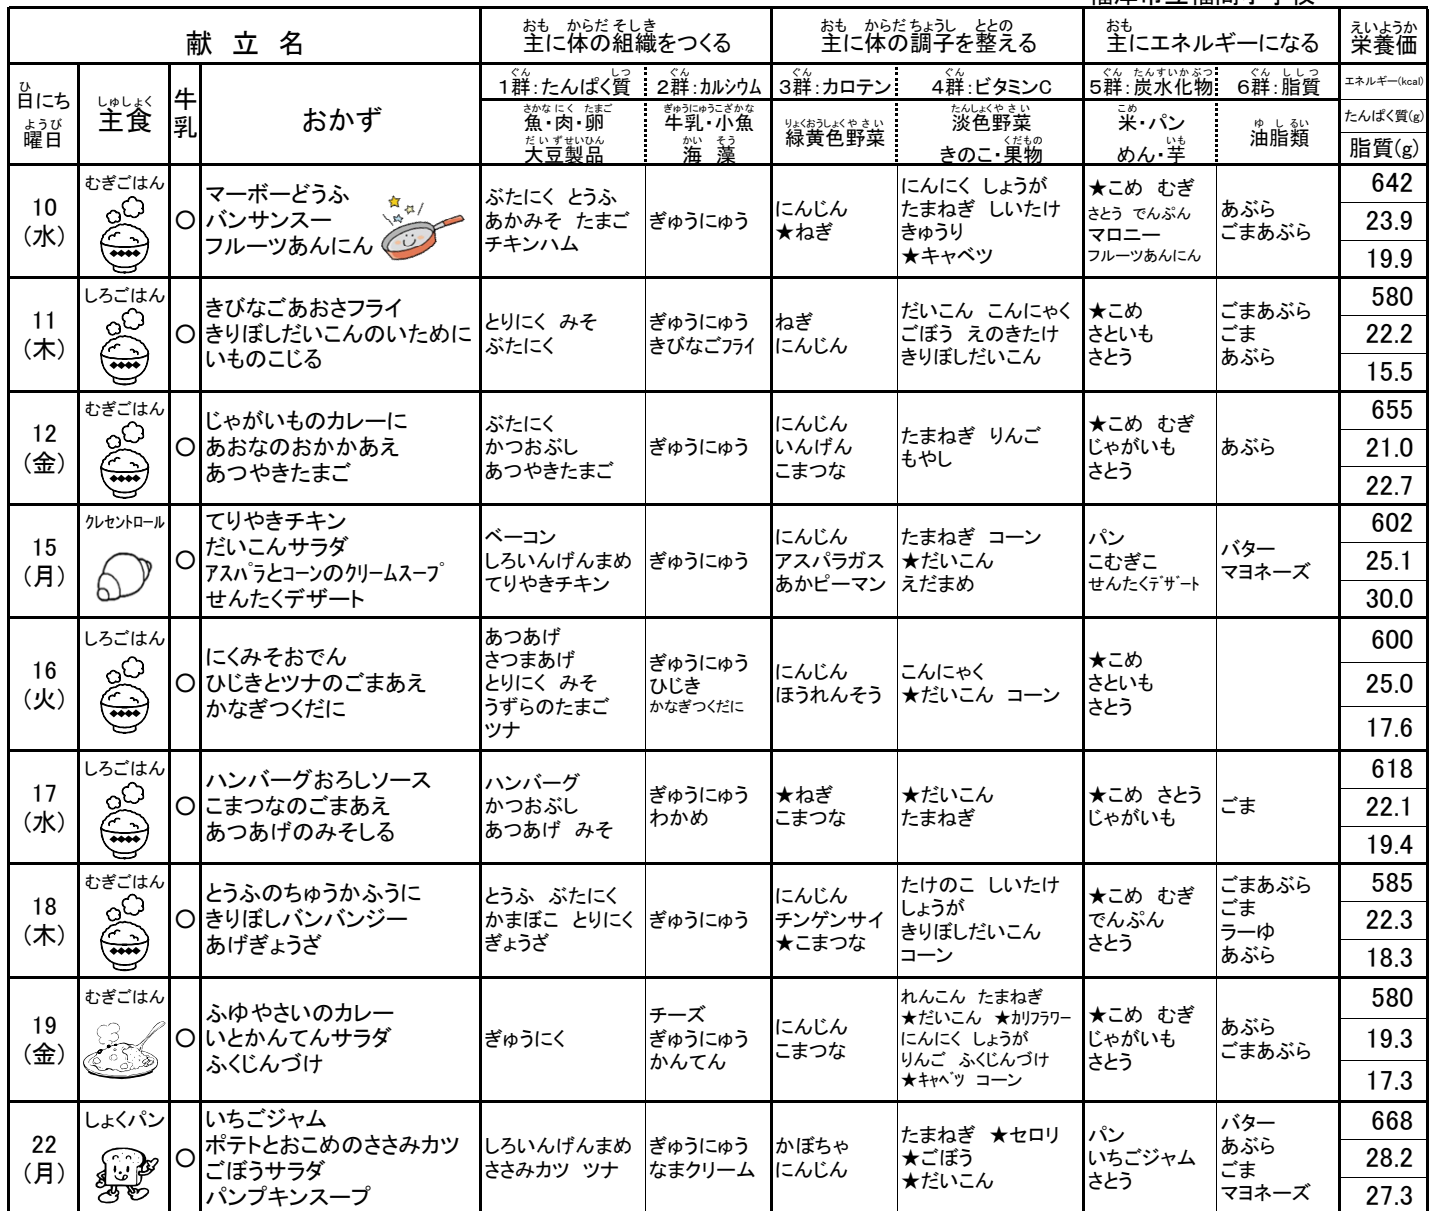 献立名
おも からだ そしき
主に体の組織をつくる
おも からだ ちょうし ととの
主に体の調子を整える
おも
主にエネルギーになる
えいようか
栄養価
ひ
日にち
ようび
曜日
しゅしょく
主食
牛乳
おかず
ぐん しつ
1群:たんぱく質
ぐん
2群:カルシウム
ぐん
3群:カロテン
ぐん
4群:ビタミンC
ぐん たんすいかぶつ
5群:炭水化物
ぐん ししつ
6群:脂質
エネルギー(kcal)
さかな にく たまご
魚・肉・卵
だいずせいひん
大豆製品
ぎゅうにゅう こざかな
牛乳・小魚
かい そう
海 藻
りょくおうしょくやさい
緑黄色野菜
たんしょくやさい
淡色野菜
くだもの
きのこ・果物
こめ
米・パン
いも
めん・芋
ゆ し るい
油脂類
たんぱく質(g)
脂質(g)
10
(水)
むぎごはん
○
マーボーどうふ
バンサンスー
フルーツあんにん
ぶたにく とうふ
あかみそ たまご
チキンハム
ぎゅうにゅう
にんじん
★ねぎ
にんにく しょうが
たまねぎ しいたけ
きゅうり
★キャベツ
★こめ むぎ
さとう でんぷん
マロニー
フルーツあんにん
あぶら
ごまあぶら
642
23.9
19.9
11
(木)
しろごはん
○
きびなごあおさフライ
きりぼしだいこんのいために
いものこじる
とりにく みそ
ぶたにく
ぎゅうにゅう
きびなごフライ
ねぎ
にんじん
だいこん こんにゃく
ごぼう えのきたけ
きりぼしだいこん
★こめ
さといも
さとう
ごまあぶら
ごま
あぶら
580
22.2
15.5
12
(金)
むぎごはん
○
じゃがいものカレーに
あおなのおかかあえ
あつやきたまご
ぶたにく
かつおぶし
あつやきたまご
ぎゅうにゅう
にんじん
いんげん
こまつな
たまねぎ りんご
もやし
★こめ むぎ
じゃがいも
さとう
あぶら
655
21.0
22.7
15
(月)
クレセントロール
○
てりやきチキン
だいこんサラダ
アスパラとコーンのクリームスープ
せんたくデザート
ベーコン
しろいんげんまめ
てりやきチキン
ぎゅうにゅう
にんじん
アスパラガス
あかピーマン
たまねぎ コーン
★だいこん
えだまめ
パン
こむぎこ
せんたくデザート
バター
マヨネーズ
602
25.1
30.0
16
(火)
しろごはん
○
にくみそおでん
ひじきとツナのごまあえ
かなぎつくだに
あつあげ
さつまあげ
とりにく みそ
うずらのたまご
ツナ
ぎゅうにゅう
ひじき
かなぎつくだに
にんじん
ほうれんそう
こんにゃく
★だいこん コーン
★こめ
さといも
さとう
600
25.0
17.6
17
(水)
しろごはん
○
ハンバーグおろしソース
こまつなのごまあえ
あつあげのみそしる
ハンバーグ
かつおぶし
あつあげ みそ
ぎゅうにゅう
わかめ
★ねぎ
こまつな
★だいこん
たまねぎ
★こめ さとう
じゃがいも
ごま
618
22.1
19.4
18
(木)
むぎごはん
○
とうふのちゅうかふうに
きりぼしバンバンジー
あげぎょうざ
とうふ ぶたにく
かまぼこ とりにく
ぎょうざ
ぎゅうにゅう
にんじん
チンゲンサイ
★こまつな
たけのこ しいたけ
しょうが
きりぼしだいこん
コーン
★こめ むぎ
でんぷん
さとう
ごまあぶら
ごま
ラーゆ
あぶら
585
22.3
18.3
19
(金)
むぎごはん
○
ふゆやさいのカレー
いとかんてんサラダ
ふくじんづけ
ぎゅうにく
チーズ
ぎゅうにゅう
かんてん
にんじん
こまつな
れんこん たまねぎ
★だいこん ★カリフラワー
にんにく しょうが
りんご ふくじんづけ
★キャベツ コーン
★こめ むぎ
じゃがいも
さとう
あぶら
ごまあぶら
580
19.3
17.3
22
(月)
しょくパン
○
いちごジャム
ポテトとおこめのささみカツ
ごぼうサラダ
パンプキンスープ
しろいんげんまめ
ささみカツ ツナ
ぎゅうにゅう
なまクリーム
かぼちゃ
にんじん
たまねぎ ★セロリ
★ごぼう
★だいこん
パン
いちごジャム
さとう
バター
あぶら
ごま
マヨネーズ
668
28.2
27.3